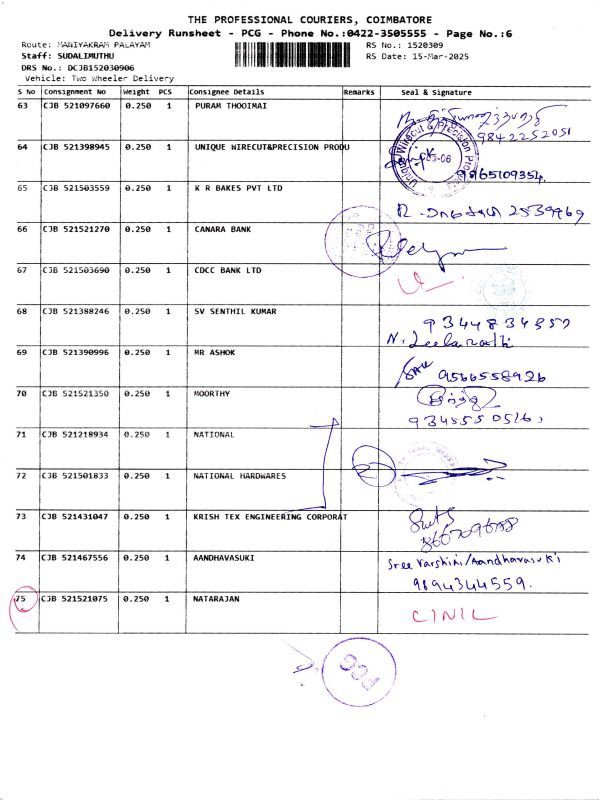 THE PROFESSIONAL COURIERS, COIMBATORE
Delivery Runsheet - PCG - Phone No.:0422-3505555 - Page No.:6
Route: MANIYAKRAM PALAYAM RS No.: 1520309
Staff: SUDALIMUTHU RS Date: 15-Mar-2025
DRS No.: DCJB152030906
Vehicle: Two Wheeler Delivery
S No Consignment No Weight PCS Consignee Details Remarks Seal & Signature
63 CJB 521097660 0.250 1 PURAM THOOIMAI
9842252051
64 CJB 521398945 0.250 1 UNIQUE WIRECUT&PRECISION PRODU
Unique Wirecut & Precision Pro
9965109354
65 CJB 521503559 0.250 1 K R BAKES PVT LTD
2539969
66 CJB 521521270 0.250 1 CANARA BANK
67 CJB 521503690 0.250 1 CDCC BANK LTD
68 CJB 521388246 0.250 1 SV SENTHIL KUMAR
9344834357
N. Leelavathi
69 CJB 521390996 0.250 1 MR ASHOK
9566558926
70 CJB 521521350 0.250 1 MOORTHY
71 CJB 521218934 0.250 1 NATIONAL
72 CJB 521501833 0.250 1 NATIONAL HARDWARES
73 CJB 521431047 0.250 1 KRISH TEX ENGINEERING CORPORAT
74 CJB 521467556 0.250 1 AANDHAVASUKI
Sree Varshini/Aandhavasuki
9894344559.
75 CJB 521521075 0.250 1 NATARAJAN
CINIL
PCG